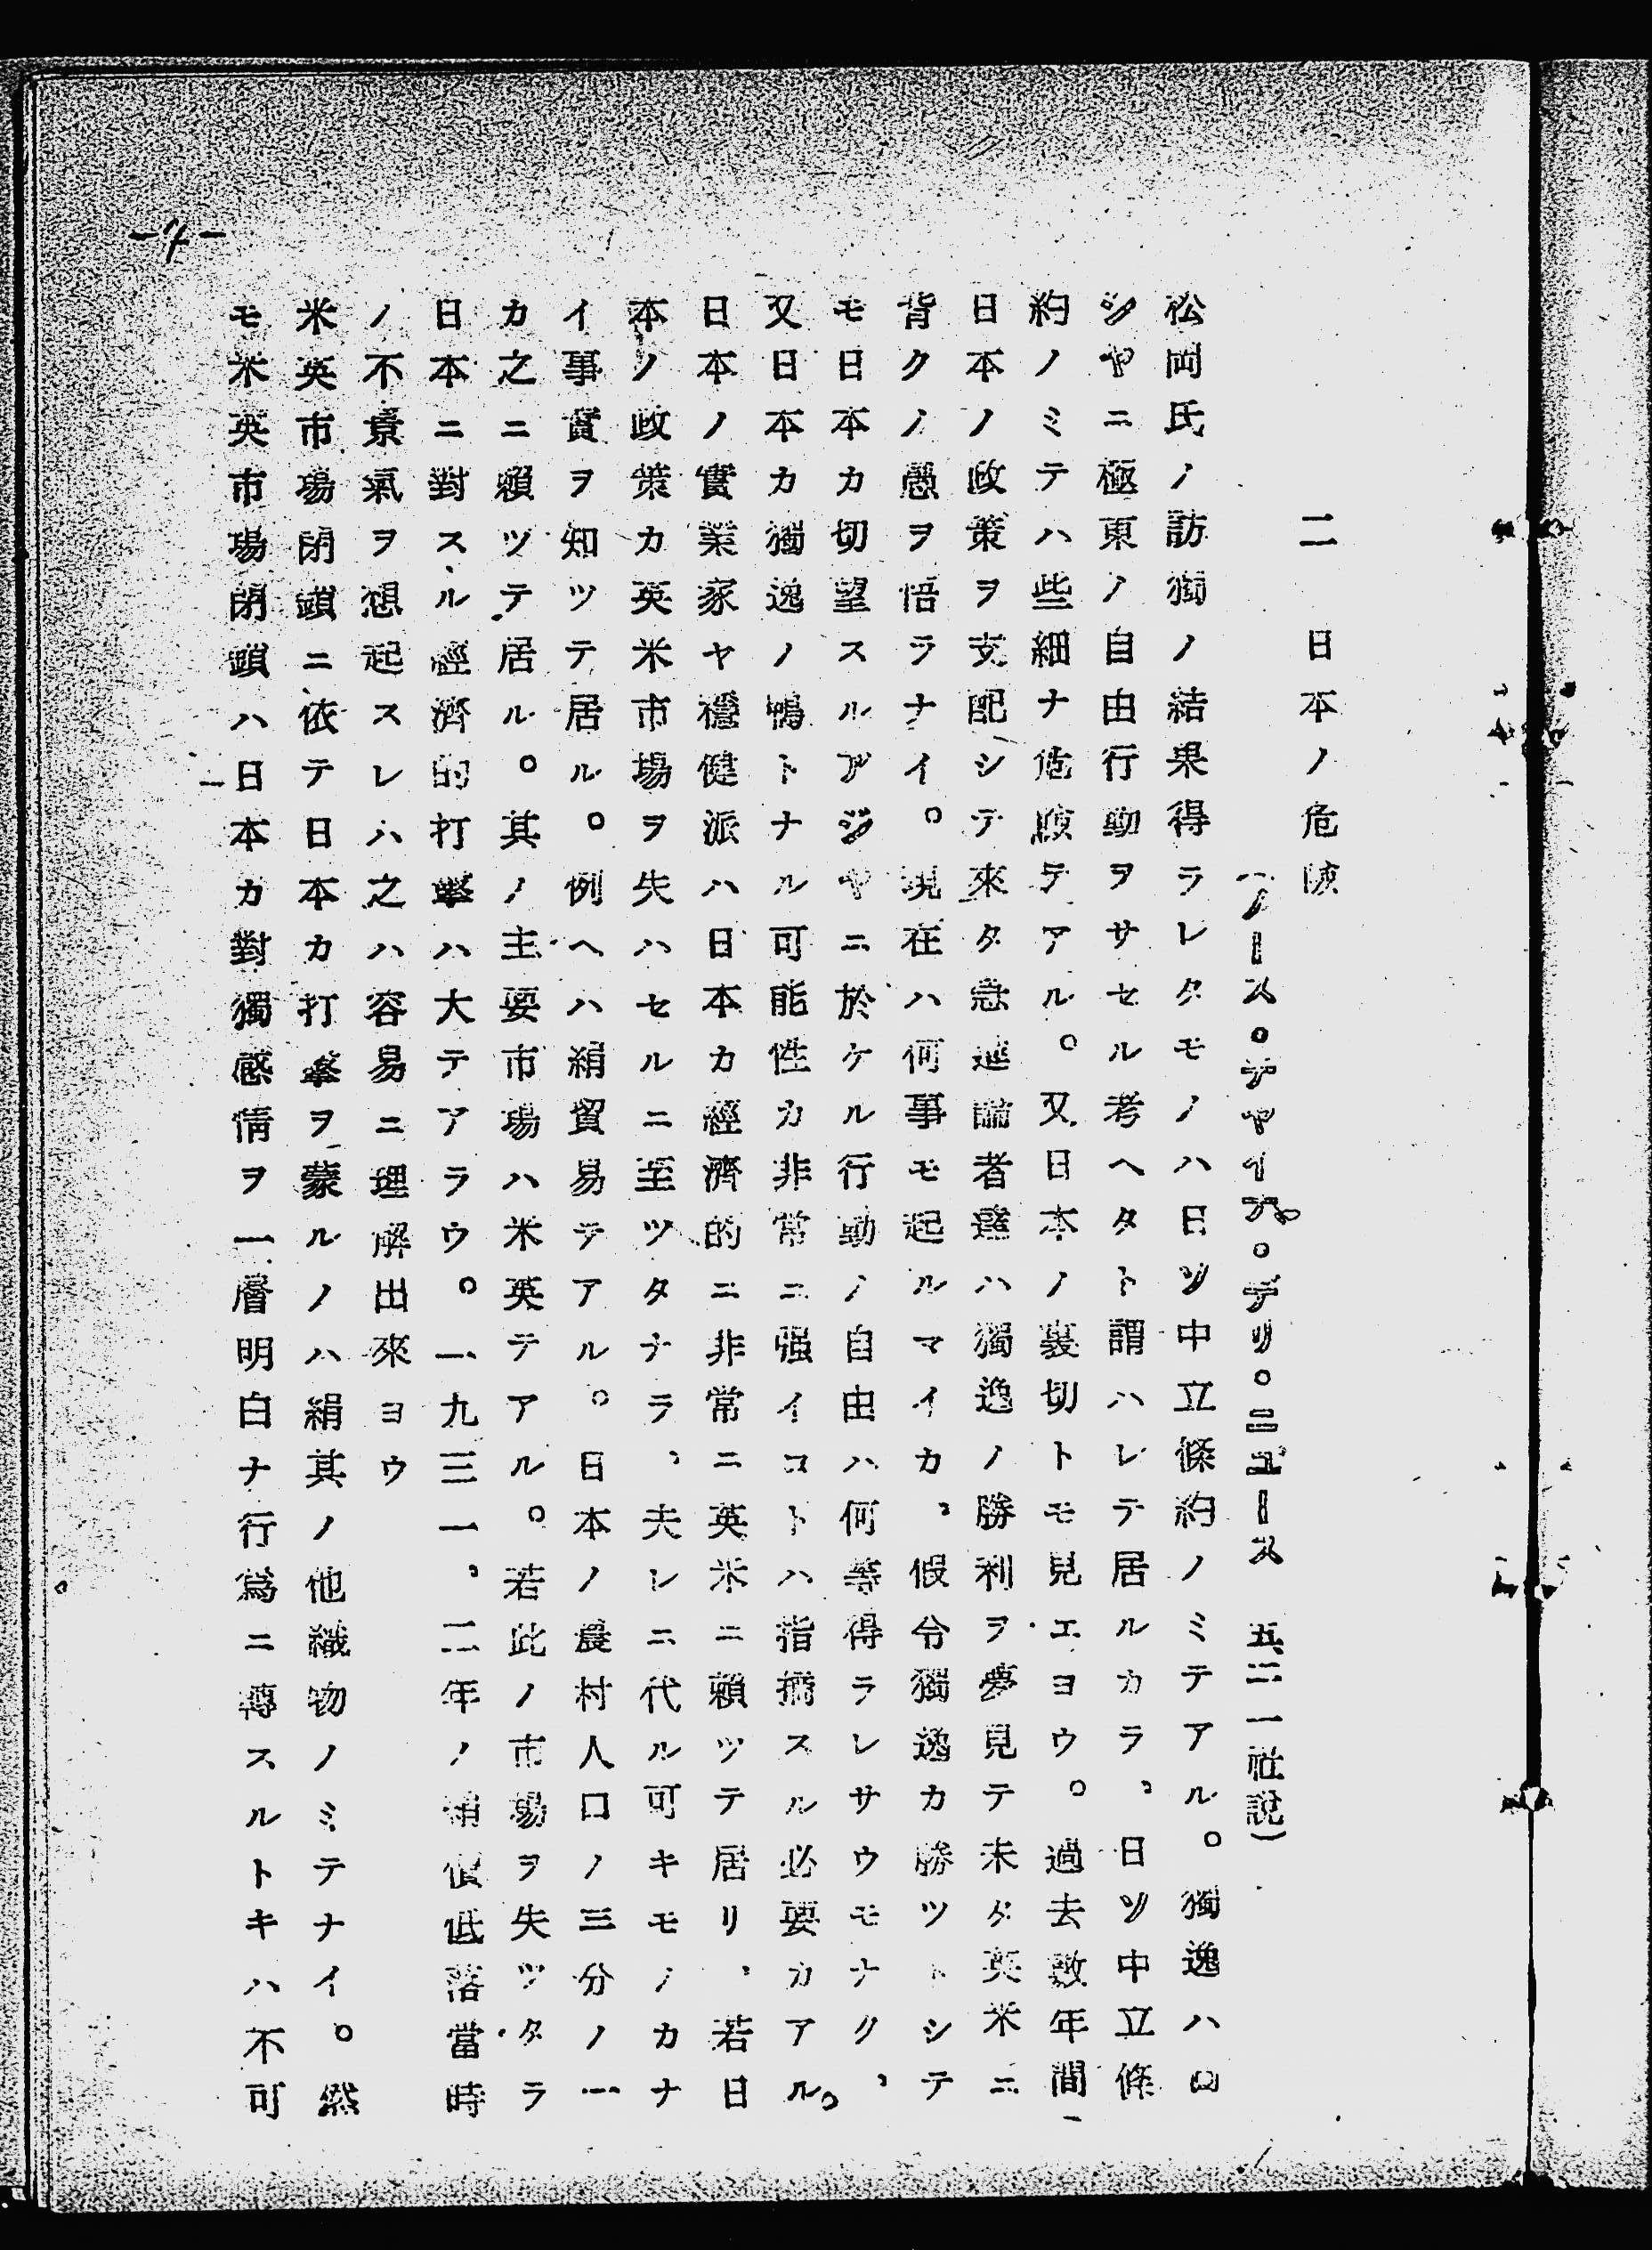 -7-
二　日本ノ危険
（ノース。チヤイナ。デリ。ニユース　五、二一社説）
松岡氏ノ訪獨ノ結果得ラレタモノハ日ソ中立條約ノミテアル。獨逸ハロ
シヤニ極東ノ自由行動ヲサセル考ヘタト謂ハレテ居ルカラ、日ソ中立條
約ノミテハ些細ナ危險テアル。又日本ノ裏切トモ見エヨウ。過去數年間
日本ノ政策ヲ支配シテ來タ急進論者達ハ獨逸ノ勝利ヲ夢見テ未タ英米ニ
背クノ愚ヲ悟ラナイ。現在ハ何事モ起ルマイカ、假令獨逸カ勝ツトシテ
モ日本カ切望スルアジヤニ於ケル行動ノ自由ハ何等得ラレサウモナク、
又日本カ獨逸ノ鴨トナル可能性カ非常ニ强イコトハ指摘スル必要カアル。
日本ノ實業家ヤ穩健派ハ日本カ經濟的ニ非常ニ英米ニ頼ツテ居リ、若日
本ノ政策カ英米市場ヲ失ハセルニ至ツタナラ、夫レニ代ル可キモノカナ
イ事實ヲ知ツテ居ル。例ヘハ絹貿易テアル。日本ノ農村人口ノ三分ノ一
カ之ニ頼ツテ居ル。其ノ主要市場ハ米英テアル。若此ノ市場ヲ失ツタラ
日本ニ對スル經濟的打擊ハ大テアラウ。一九三一、二年ノ絹價低落當時
ノ不景氣ヲ想起スレハ之ハ容易ニ理解出來ヨウ
米英市場閉鎖ニ依テ日本カ打擊ヲ蒙ルノハ絹其ノ他織物ノミテナイ。然
モ米英市場閉鎖ハ日本カ對獨感情ヲ一層明白ナ行爲ニ轉スルトキハ不可